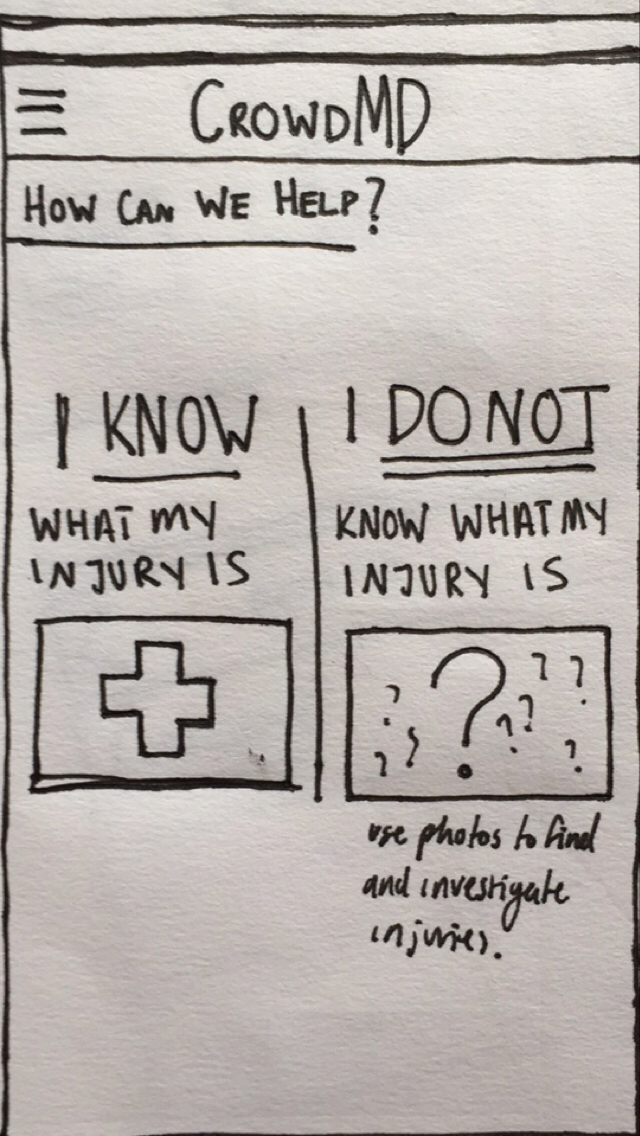 CROWDMD
HOW CAN WE HELP?
I KNOW
WHAT MY
INJURY IS
I DO NOT
KNOW WHAT MY
INJURY IS
? ? ? ? ? ? ? ? ?
use photos to find
and investigate
injuries.